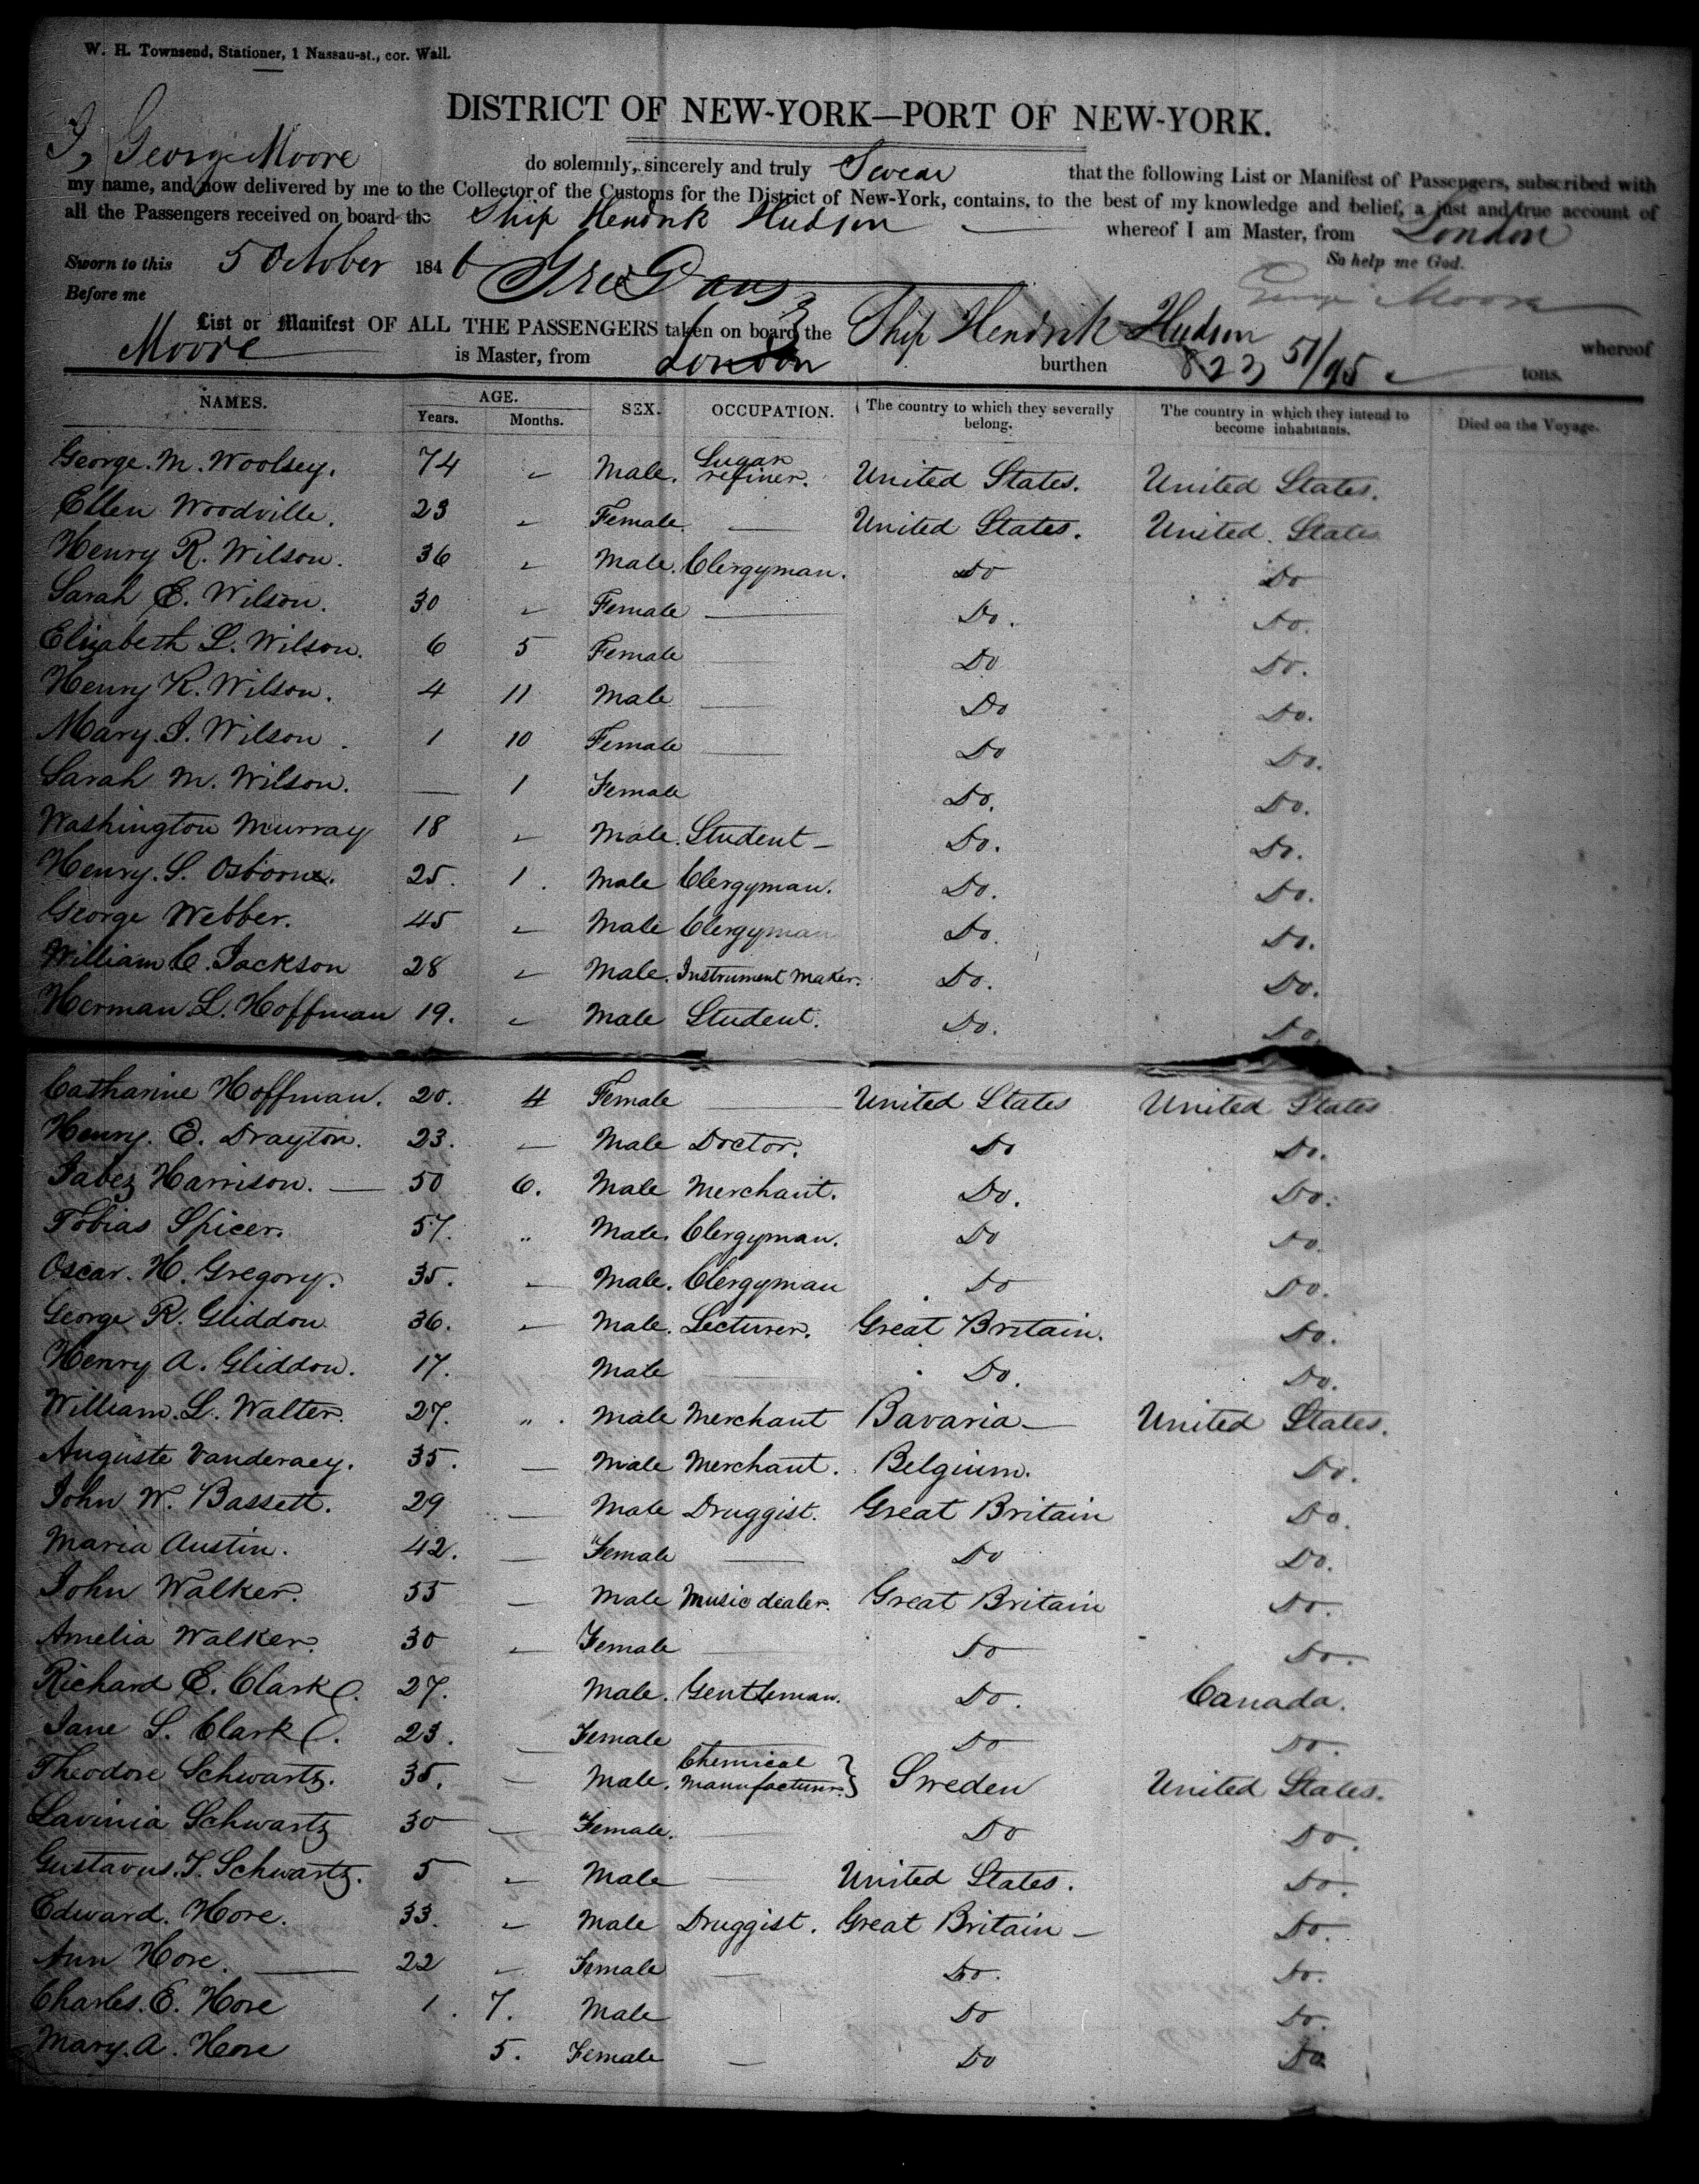 W. H. Townsend, Stationer, 1 Nassau-st., cor. Wall.
DISTRICT OF NEW-YORK—PORT OF NEW-YORK.
I, George Moore do solemnly, sincerely and truly Swear that the following List or Manifest of Passengers, subscribed with
my name, and now delivered by me to the Collector of the Customs for the District of New-York, contains, to the best of my knowledge and belief, a just and true account of
all the Passengers received on board the Ship Hendrik Hudson whereof I am Master, from London
Sworn to this 5 October 1846 So help me God.
Before me George Moore
List or Manifest OF ALL THE PASSENGERS taken on board the Ship Hendrik Hudson whereof
Moore is Master, from London burthen 823 51/95 tons.
NAMES. AGE. SEX. OCCUPATION. The country to which they severally belong. The country in which they intend to become inhabitants. Died on the Voyage.
Years. Months.
George. M. Woolsey. 74 " Male. Sugar refiner. United States. United States.
Ellen Woodville. 23 " Female — United States. United States
Henry R. Wilson. 36 " Male. Clergyman. Do Do
Sarah E. Wilson. 30 " Female — Do. Do.
Elizabeth L. Wilson. 6 5 Female Do Do.
Henry K. Wilson. 4 11 Male — Do Do.
Mary. J. Wilson. 1 10 Female — Do Do.
Sarah M. Wilson. — 1 Female Do. Do.
Washington Murray 18 " Male. Student — Do. Do.
Henry. S. Osborne. 25. 1. Male Clergyman. Do. Do.
George Webber. 45 " Male Clergyman Do. Do.
William C. Jackson 28 " Male. Instrument Maker. Do. Do.
Herman. L. Hoffman 19. " Male Student. Do. Do.
Catharine Hoffman. 20. 4 Female — United States United States
Henry. E. Drayton. 23. — Male Doctor. Do Do.
Jabez Harrison. — 50 6. Male Merchant. Do. Do.
Tobias Spicer. 57. " Male. Clergyman. Do Do.
Oscar. H. Gregory. 35. — Male. Clergyman Do Do.
George R. Gliddon 36. — Male. Lecturer. Great Britain. Do.
Henry A. Gliddon. 17. Male — Do. Do.
William. L. Walter. 27. " Male Merchant Bavaria — United States.
Auguste Vanderaey. 35. — Male Merchant. Belgium. Do.
John W. Bassett. 29 — Male Druggist. Great Britain Do.
Maria Austin. 42. — Female — Do Do.
John Walker. 55 — Male Music dealer. Great Britain Do.
Amelia Walker. 30 — Female — Do Do.
Richard E. Clark. 27. Male. Gentleman. Do. Canada.
Jane S. Clark. 23. — Female — Do Do.
Theodore Schwartz. 35. — Male. Chemical manufacturer } Sweden United States.
Lavinia Schwartz 30 — Female. — Do Do.
Gustavus. T. Schwartz. 5 " Male — United States. Do.
Edward. Hore. 33. " Male Druggist. Great Britain — Do.
Ann Hore. — 22 " Female — Do. Do.
Charles. E. Hore 1. 7. Male Do Do.
Mary. A. Hore 5. Female — Do Do